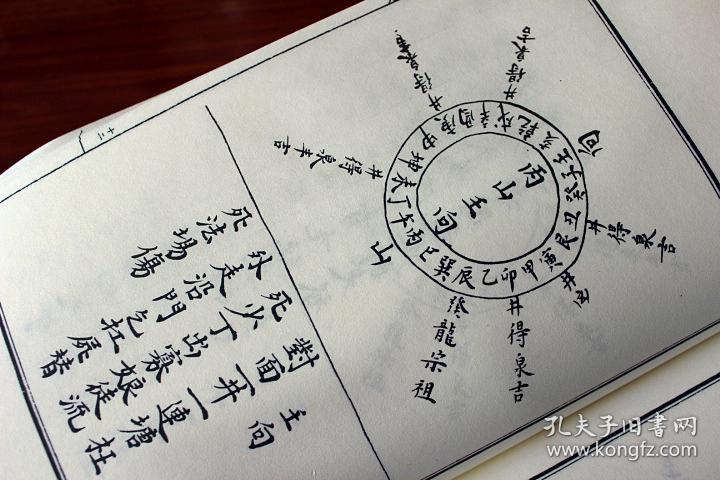 丙山壬向
壬子癸丑艮寅甲卯乙辰巽巳丙午丁未坤申庚酉辛戌乾亥
向
山
井得泉吉
井得泉吉
井凶
井得泉吉
癸龍宗祖
井得泉吉
十二
壬向
對面一井一連塘枉
死少丁出寡娘徒流
外走沿門乞扛屍楮
死法場傷
孔夫子旧书网
www.kongfz.com